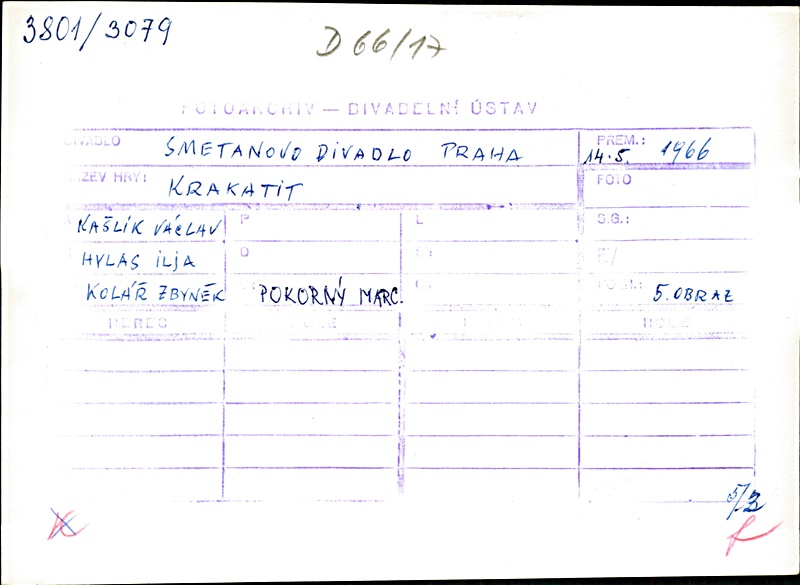 3801/3079
D 66/17
FOTOARCHIV — DIVADELNÍ ÚSTAV
DIVADLO SMETANOVO DIVADLO PRAHA PREM.: 14.5. 1966
NÁZEV HRY: KRAKATIT FOTO
KAŠLÍK VÁCLAV P L S.G.:
HYLAS ILJA D
KOLÁŘ ZBYNĚK POKORNÝ MARC. 5. OBRAZ
HEREC ROLE HEREC ROLE
5/3